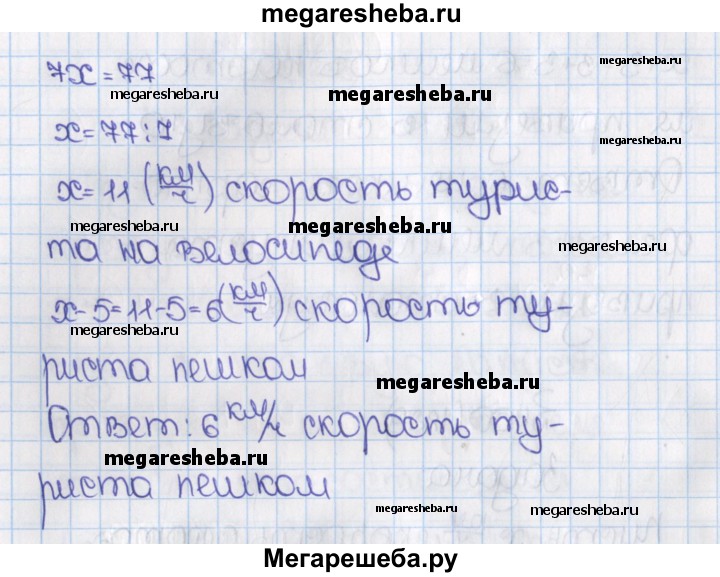 megaresheba.ru
7x = 77
megaresheba.ru
megaresheba.ru
megaresheba.ru
x = 77 : 7
megaresheba.ru
x = 11 (км/ч) скорость турис-
megaresheba.ru
megaresheba.ru
megaresheba.ru
та на велосипеде
x - 5 = 11 - 5 = 6 (км/ч) скорость ту-
megaresheba.ru
megaresheba.ru
риста пешком
megaresheba.ru
Ответ: 6 км/ч скорость ту-
megaresheba.ru
megaresheba.ru
риста пешком
megaresheba.ru
megaresheba.ru
Мегарешеба.ру